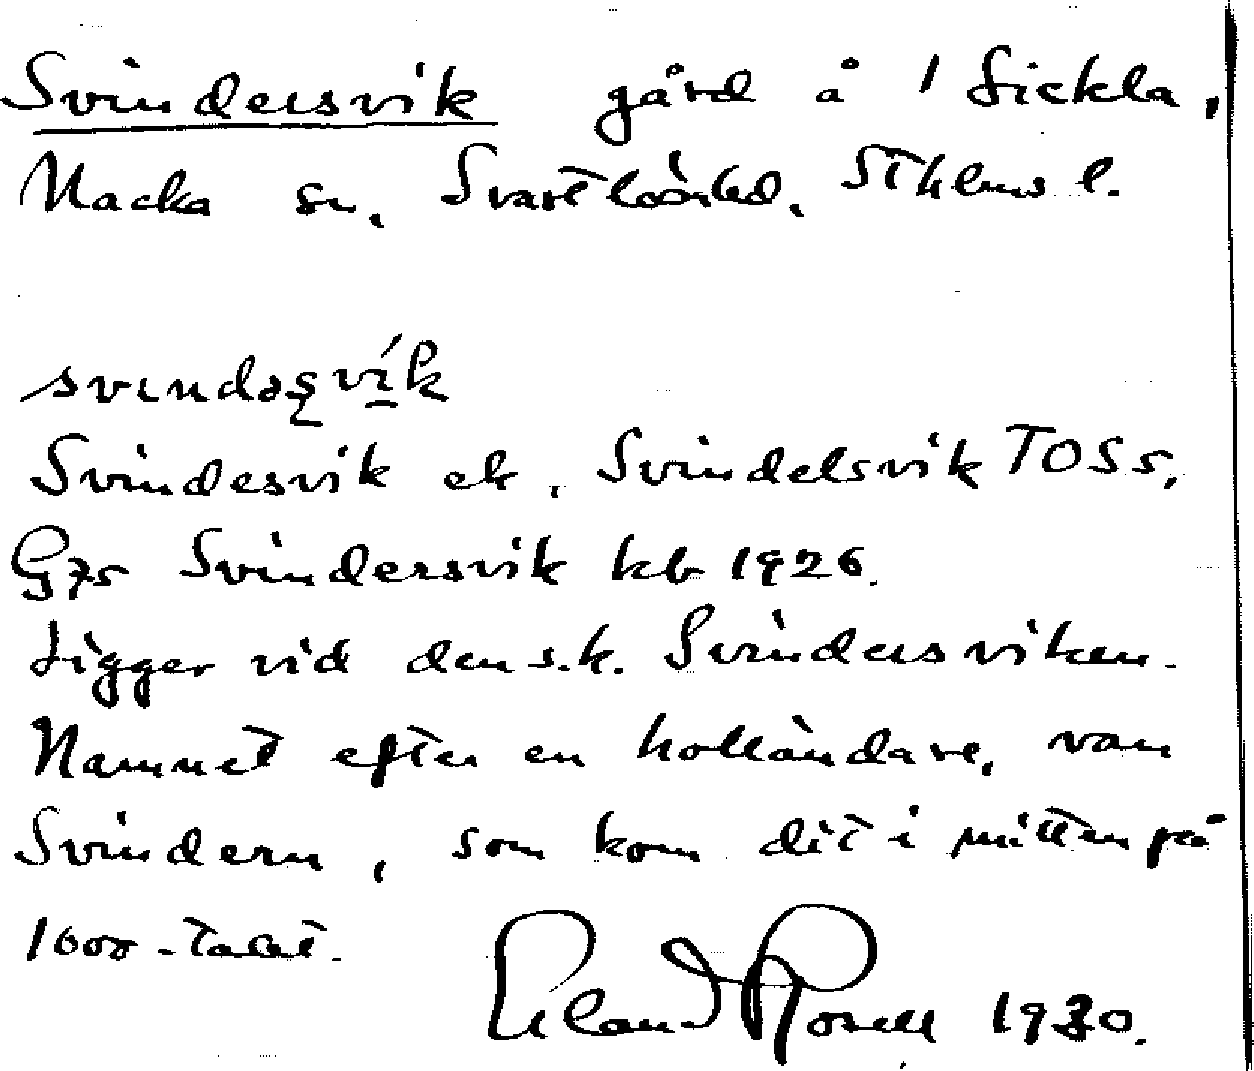 Svindersvik gård å 1 Sickla,
Nacka sn, Svartlösahd, Sthlms l.
svindəʂvík
Svindesvik ek, Svindelsvik TOSs,
G75 Svindersvik kb 1926.
Ligger vid den s.k. Svindersviken.
Namnet efter en holländare, van
Svindern, som kom dit i mitten på
1600-talet.
Erland Rosell 1930.